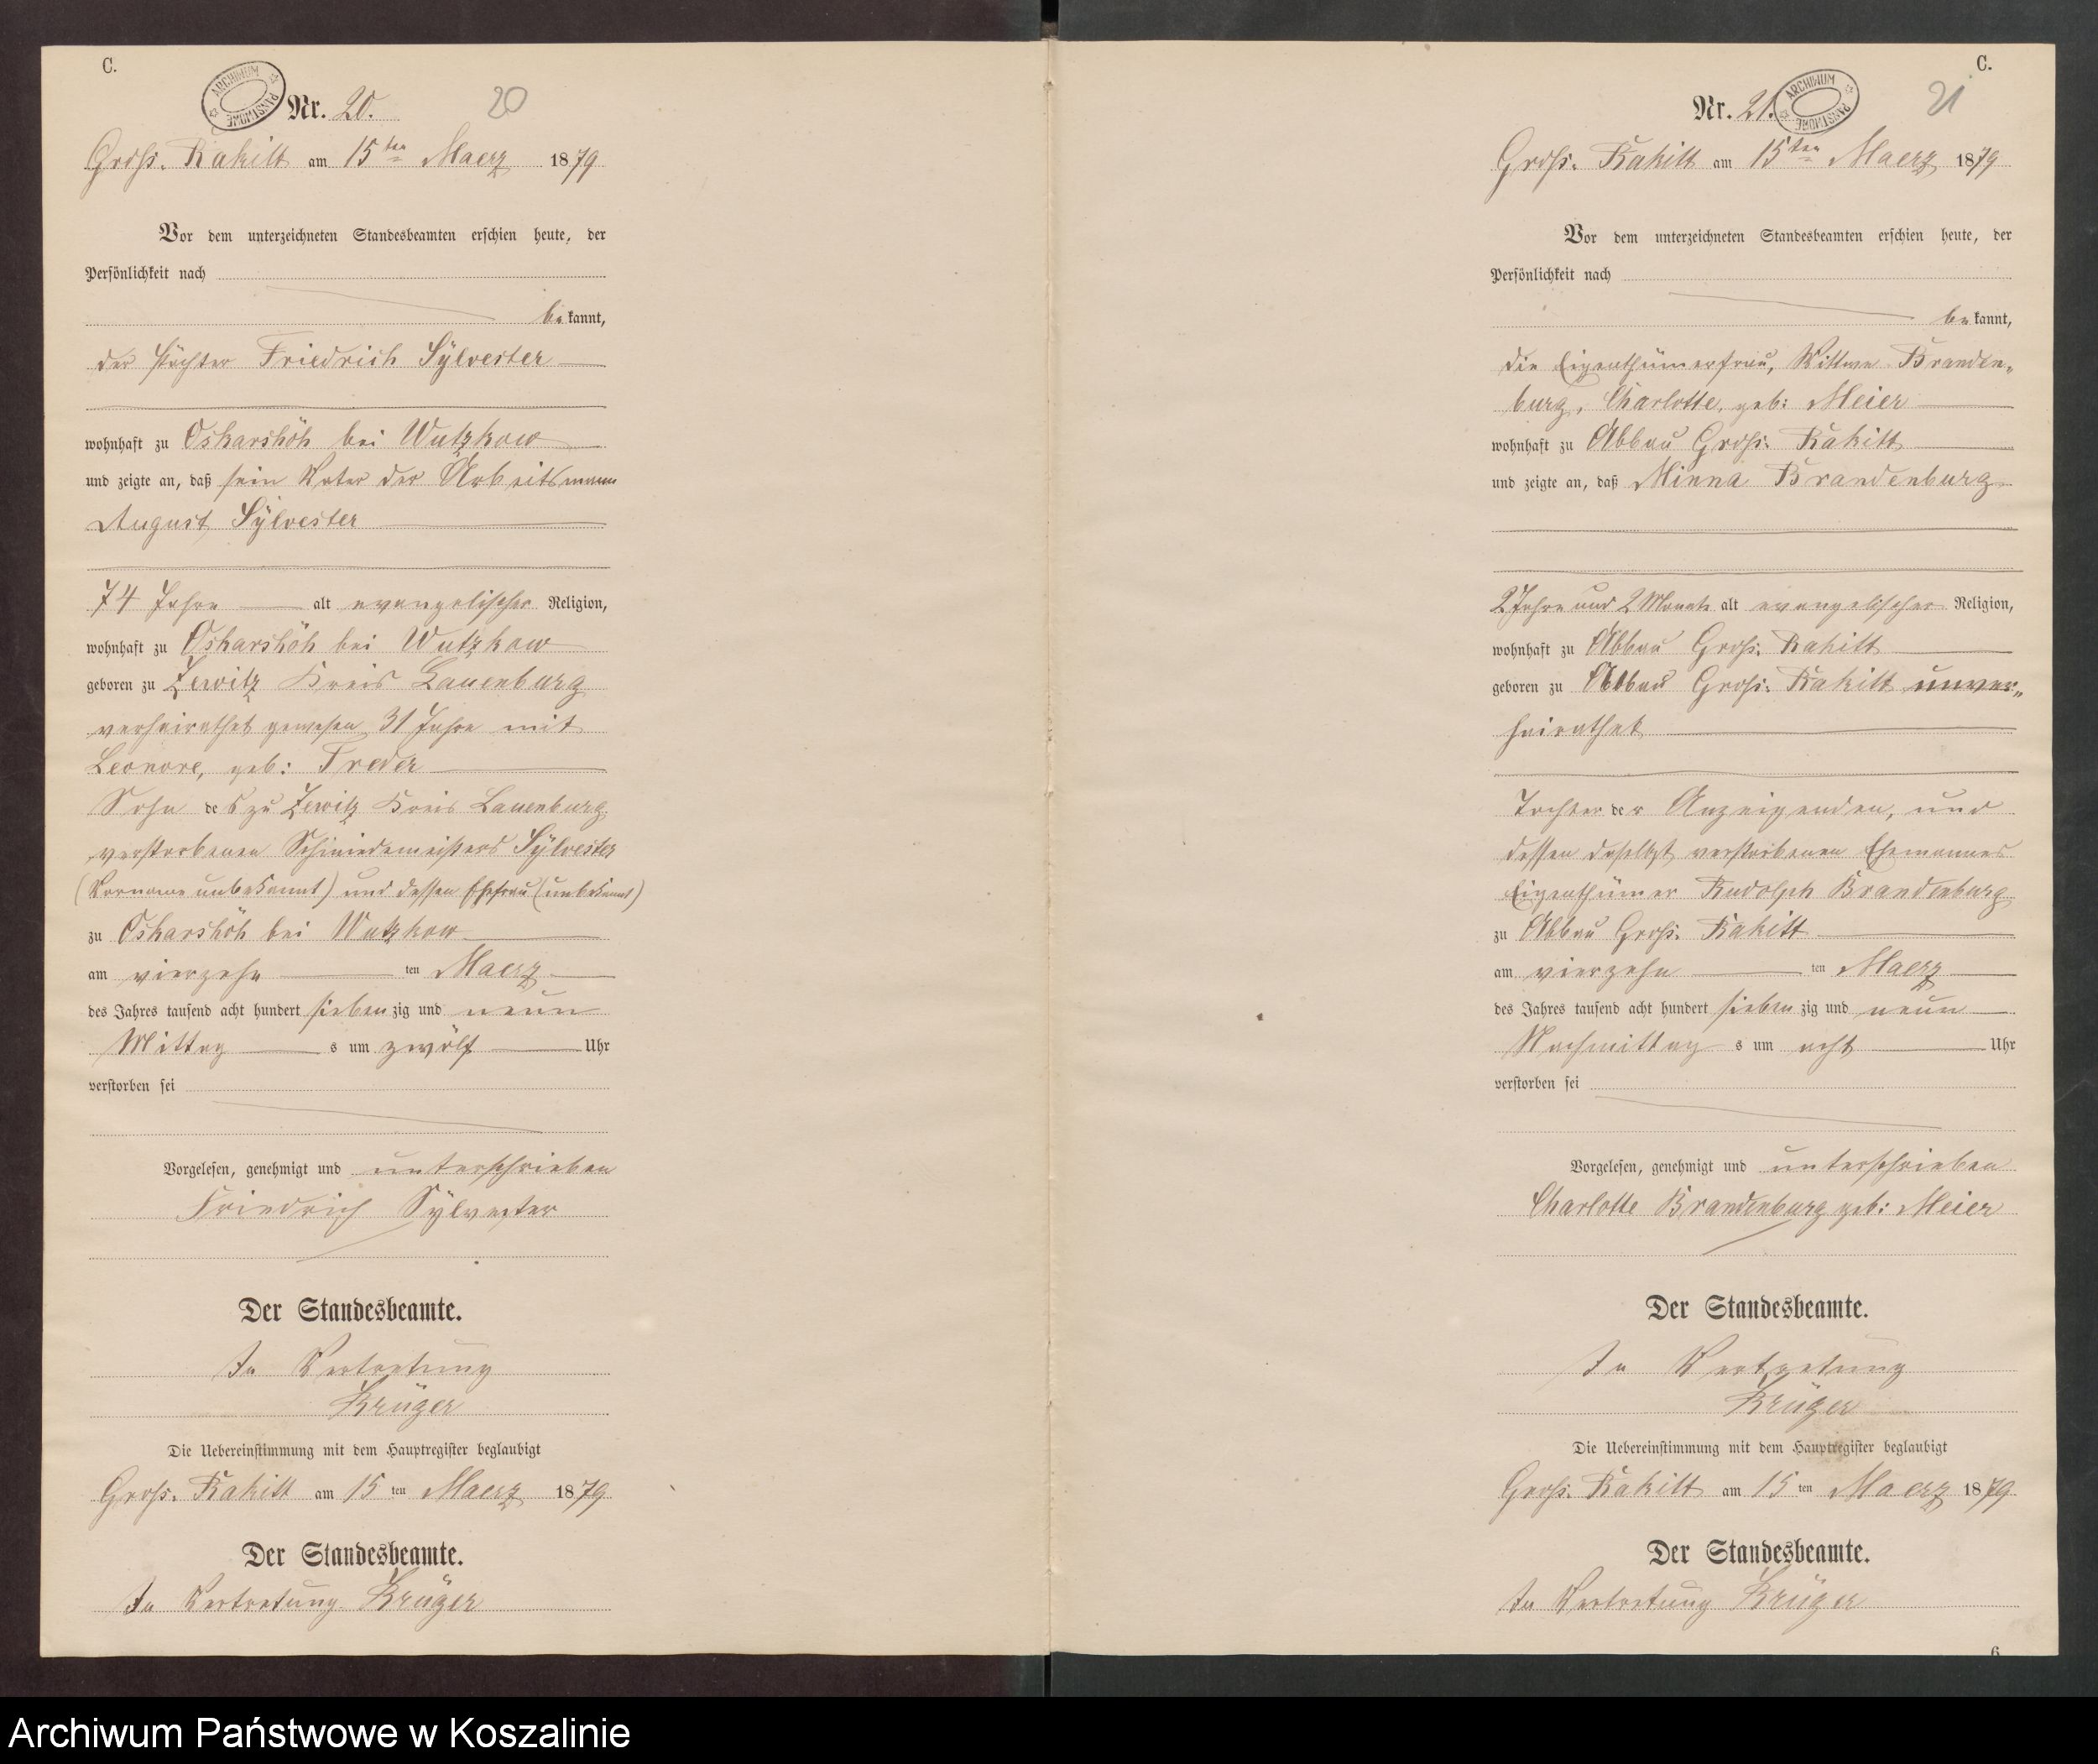 C.
Nr. 20. 20
ARCHIWUM PAŃSTWOWE
Groß. Rakitt am 15ten Maerz 1879
Vor dem unterzeichneten Standesbeamten erschien heute, der
Persönlichkeit nach
bekannt,
der Pächter Friedrich Sylvester
wohnhaft zu Oskarshöh bei Wutzkow
und zeigte an, daß sein Vater der Arbeitsmann
August Sylvester
74 Jahre alt evangelischer Religion,
wohnhaft zu Oskarshöh bei Wutzkow
geboren zu Zewitz Kreis Lauenburg
verheirathet gewesen 31 Jahre mit
Leonore, geb: Treder
Sohn des zu Zewitz Kreis Lauenburg
verstorbenen Schmiedemeisters Sylvester
(Vorname unbekannt) und dessen Ehefrau (unbekannt)
zu Oskarshöh bei Wutzkow
am vierzehn ten Maerz
des Jahres tausend acht hundert siebenzig und neun
Mittag s um zwölf Uhr
verstorben sei
Vorgelesen, genehmigt und unterschrieben
Friedrich Sylvester
Der Standesbeamte.
In Vertretung
Krüger
Die Uebereinstimmung mit dem Hauptregister beglaubigt
Groß. Rakitt am 15 ten Maerz 1879
Der Standesbeamte.
In Vertretung Krüger
C.
Nr. 21. 21
ARCHIWUM PAŃSTWOWE
Groß. Rakitt am 15ten Maerz 1879
Vor dem unterzeichneten Standesbeamten erschien heute, der
Persönlichkeit nach
bekannt,
die Eigenthümerfrau, Wittwe Branden-
burg, Charlotte, geb: Meier
wohnhaft zu Abbau Groß: Rakitt
und zeigte an, daß Minna Brandenburg
2 Jahre und 2 Monate alt evangelischer Religion,
wohnhaft zu Abbau Groß: Rakitt
geboren zu Abbau Groß: Rakitt unver-
heirathet
Tochter der Anzeigenden, und
dessen daselbst verstorbenen Ehemannes
Eigenthümer Rudolph Brandenburg
zu Abbau Groß: Rakitt
am vierzehn ten Maerz
des Jahres tausend acht hundert siebenzig und neun
Nachmittag s um acht Uhr
verstorben sei
Vorgelesen, genehmigt und unterschrieben
Charlotte Brandenburg geb: Meier
Der Standesbeamte.
In Vertretung
Krüger
Die Uebereinstimmung mit dem Hauptregister beglaubigt
Groß: Rakitt am 15 ten Maerz 1879
Der Standesbeamte.
In Vertretung Krüger
6
Archiwum Państwowe w Koszalinie